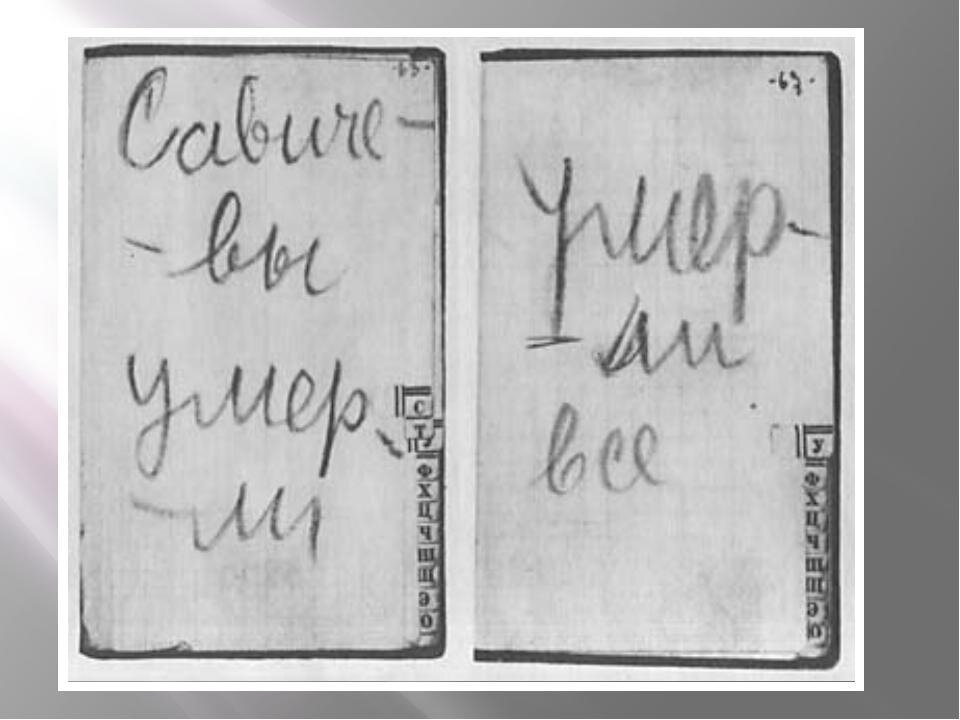 ·63·
Савиче-
- вы
умер-
- ли
С
Т
У
Ф
Х
Ц
Ч
Ш
Щ
Э
О
·67·
умер-
- ли
все
У
Ф
Х
Ц
Ч
Ш
Щ
Э
О